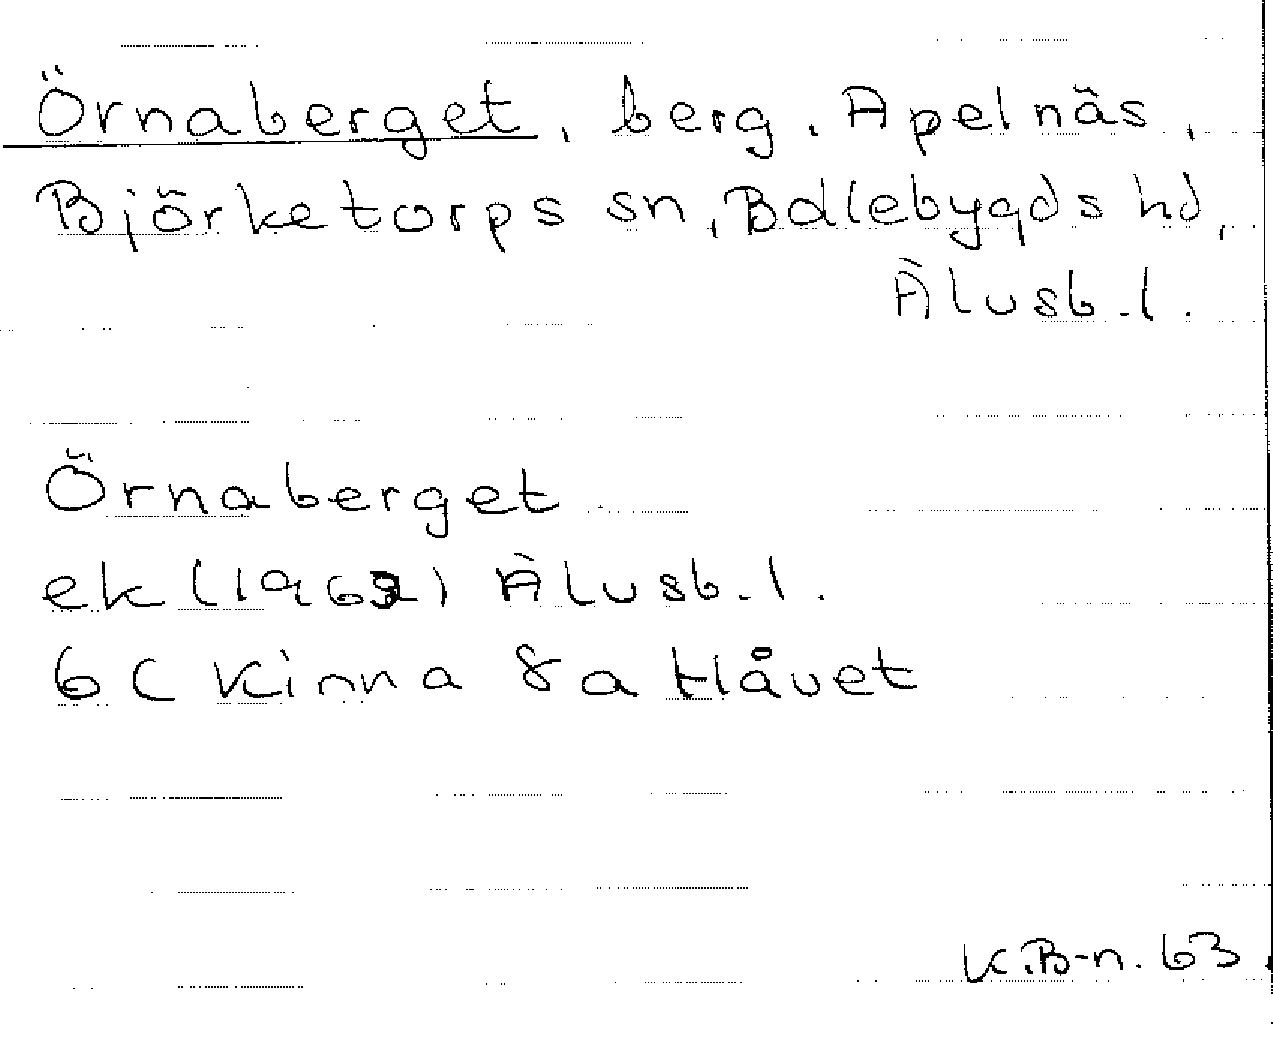 Örnaberget, berg, Apelnäs,
Björketorps sn, Bollebygds hd,
Älvsb.l.
Örnaberget
ek (1962) Älvsb.l.
6C Kinna 8a Håvet
K.B-n. 63